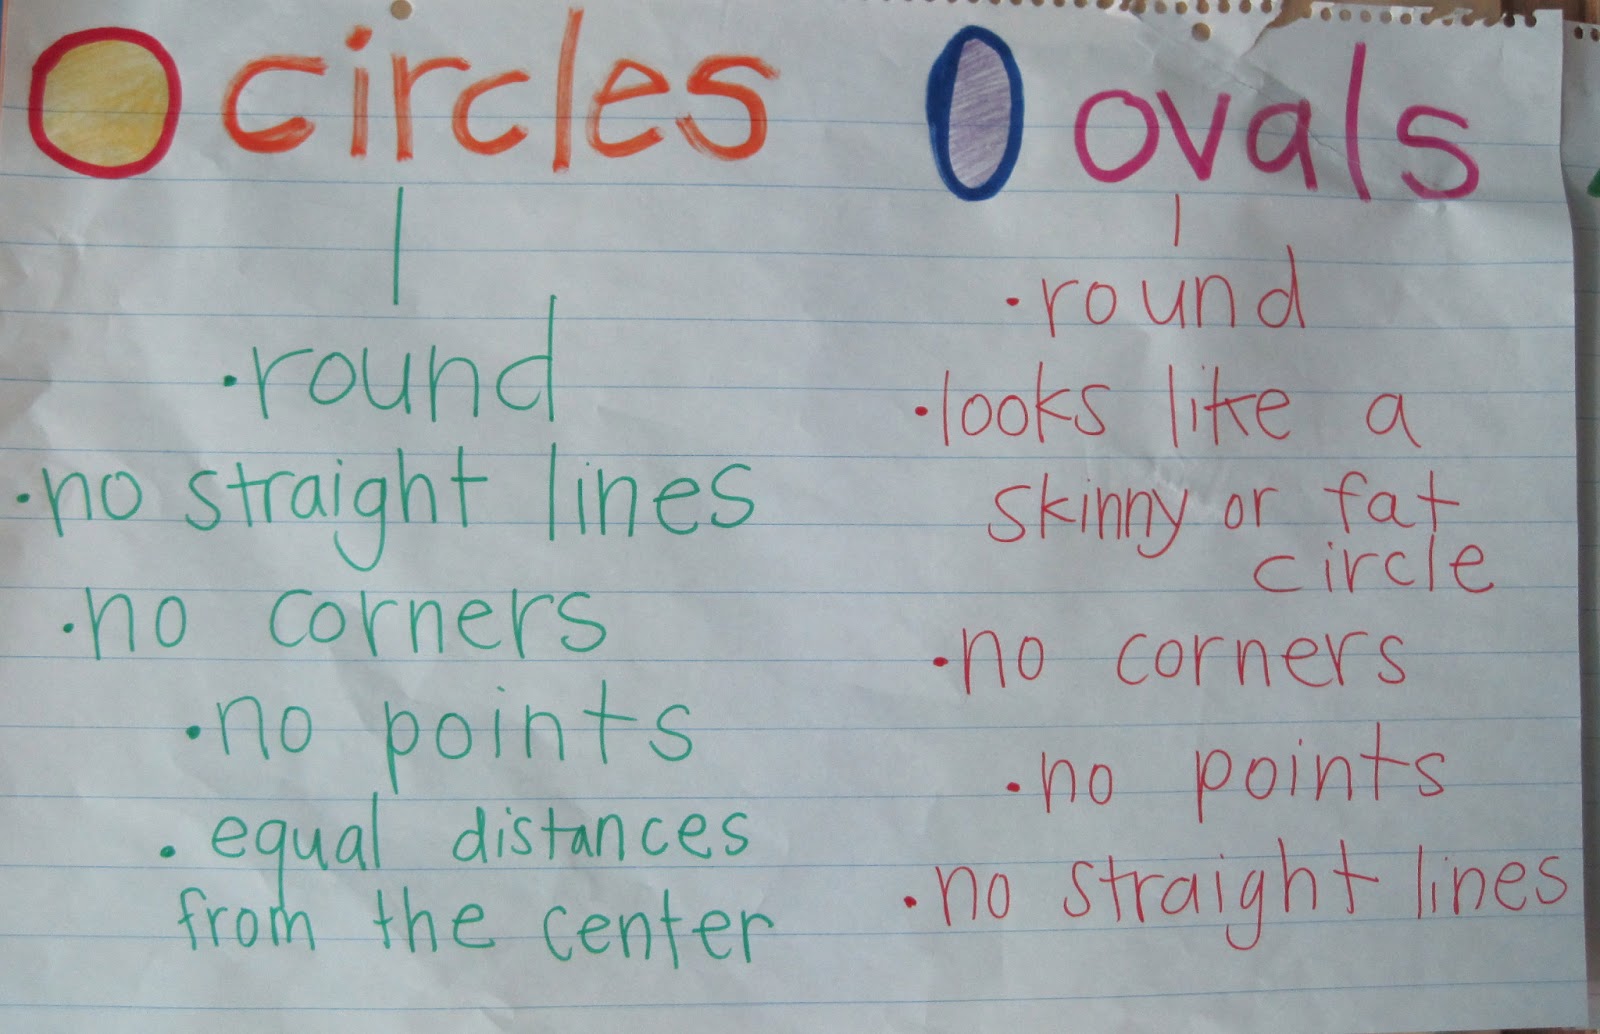 circles
• round
• no straight lines
• no corners
• no points
• equal distances
from the center
ovals
• round
• looks like a
skinny or fat
circle
• no corners
• no points
• no straight lines